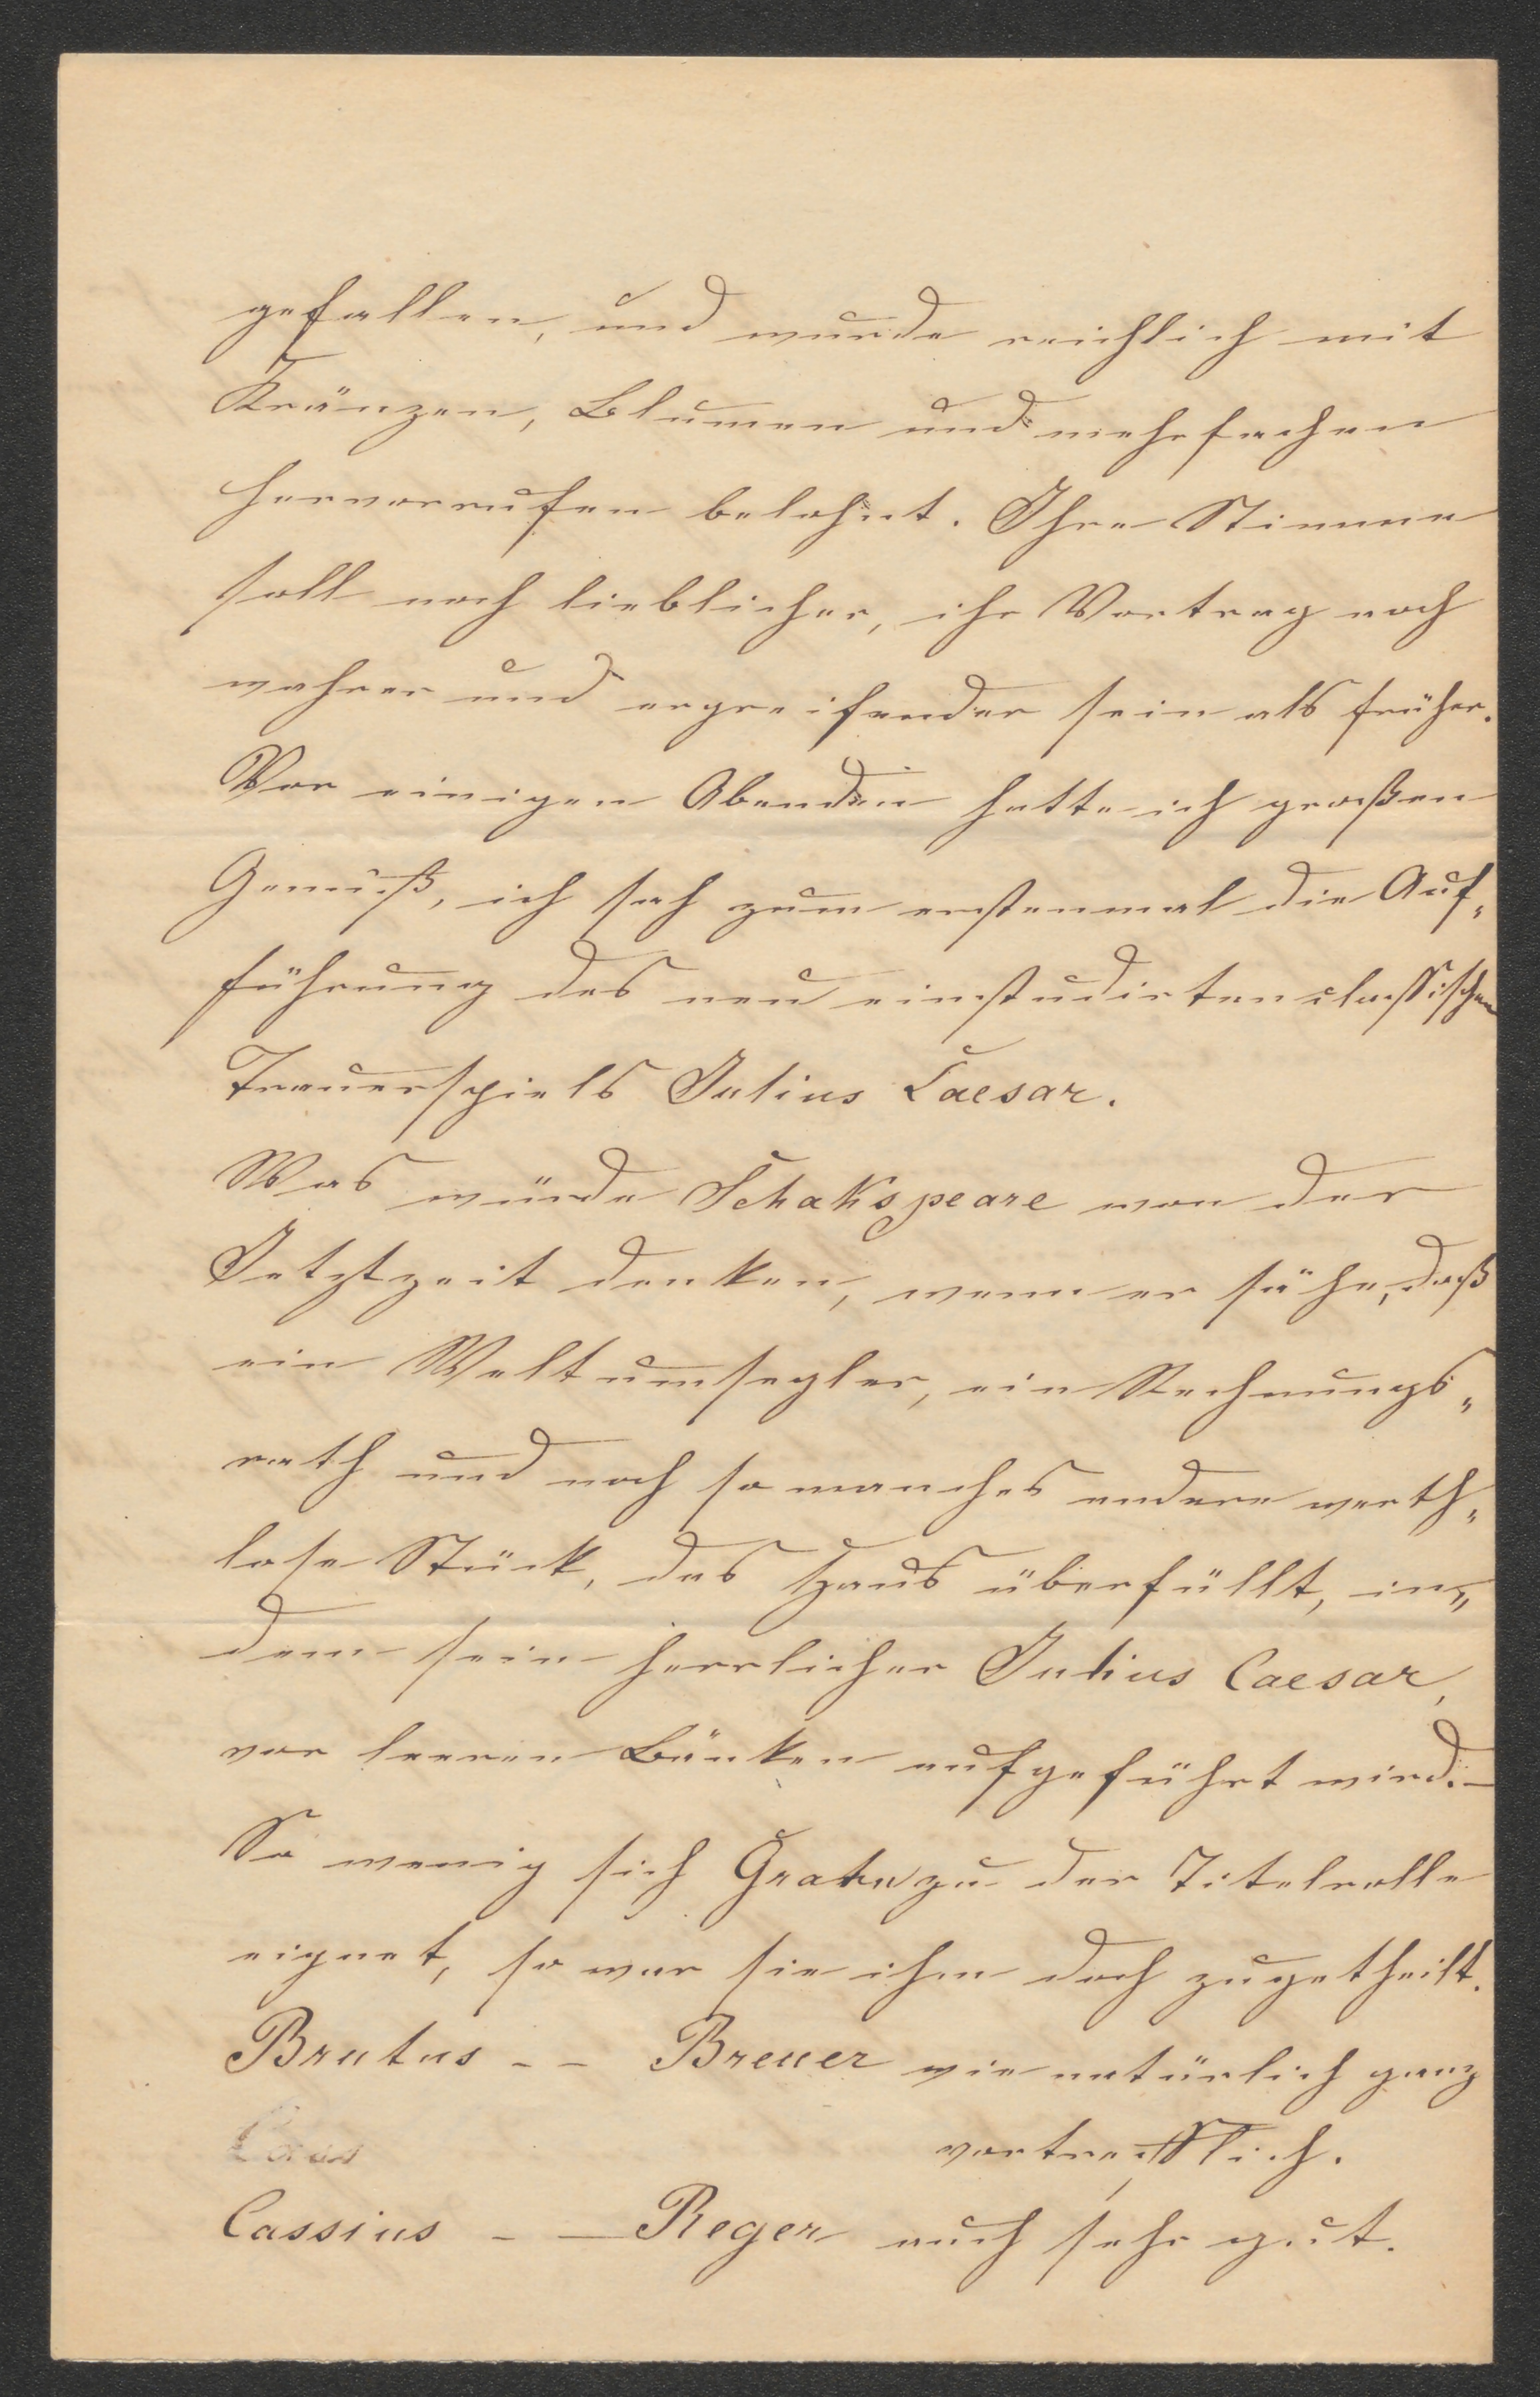 gefallen, und wurde reichlich mit
Kränzen, Blumen und mehrfachen
Hervorrufen belohnt. Ihre Stimme
soll noch lieblicher, ihr Vortrag noch
wahrer und ergreifender sein als früher.
Vor einigen Abenden hatte ich großen
Genuß, ich sah zum erstenmal die Auf„
führung des neu einstudirten classischen
Trauerspiels Julius Caesar.
Was würde Schakspeare von der
Jetztzeit denken, wenn er sähe, daß
ein Weltumsegler, ein Rechnungs„
rath und noch so manches andere werth„
lose Stück, das Haus überfüllt, in„
dem sein herrlicher Julius Caesar,
vor leeren Bänken aufgeführt wird. –
So wenig sich Grahn zu der Titelrolle
eignet, so war sie ihm doch zugetheilt.
Brutus - - Breuer wie natürlich ganz
Cass
vortrefflich.
Cassius - — Reger auch sehr gut.